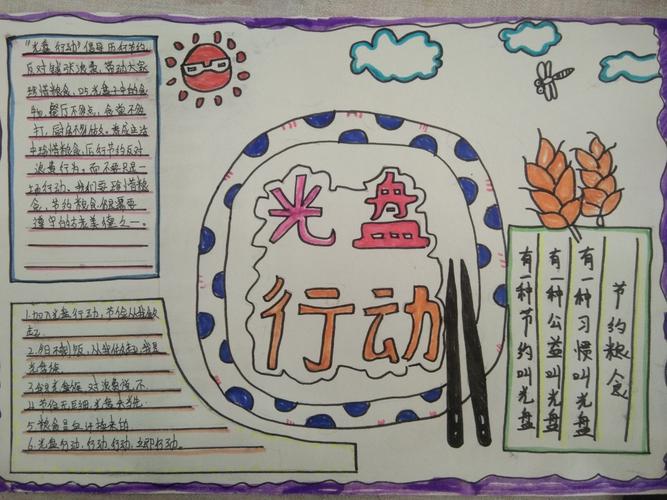 “光盘行动”倡导厉行节约
反对铺张浪费，带动大家
珍惜粮食、吃光盘子中的食
物。餐厅不多点，食堂不多
打，厨房不多做。养成生活
中珍惜粮食、厉行节约反对
浪费行为。而不要只是一
场行动。我们要珍惜粮
食，节约粮食仍是需要
遵守的优美德之一。
光盘
行动
节约粮食
有一种习惯叫光盘
有一种公益叫光盘
有一种节约叫光盘
1.加入光盘行动，节俭从我做
起
2.从我做起
光盘族
3.光盘族 对浪费说不
4.节俭无巨细 光盘来先
5.粮食是血汗换来的
6.光盘行动，行动，行动，立即行动。